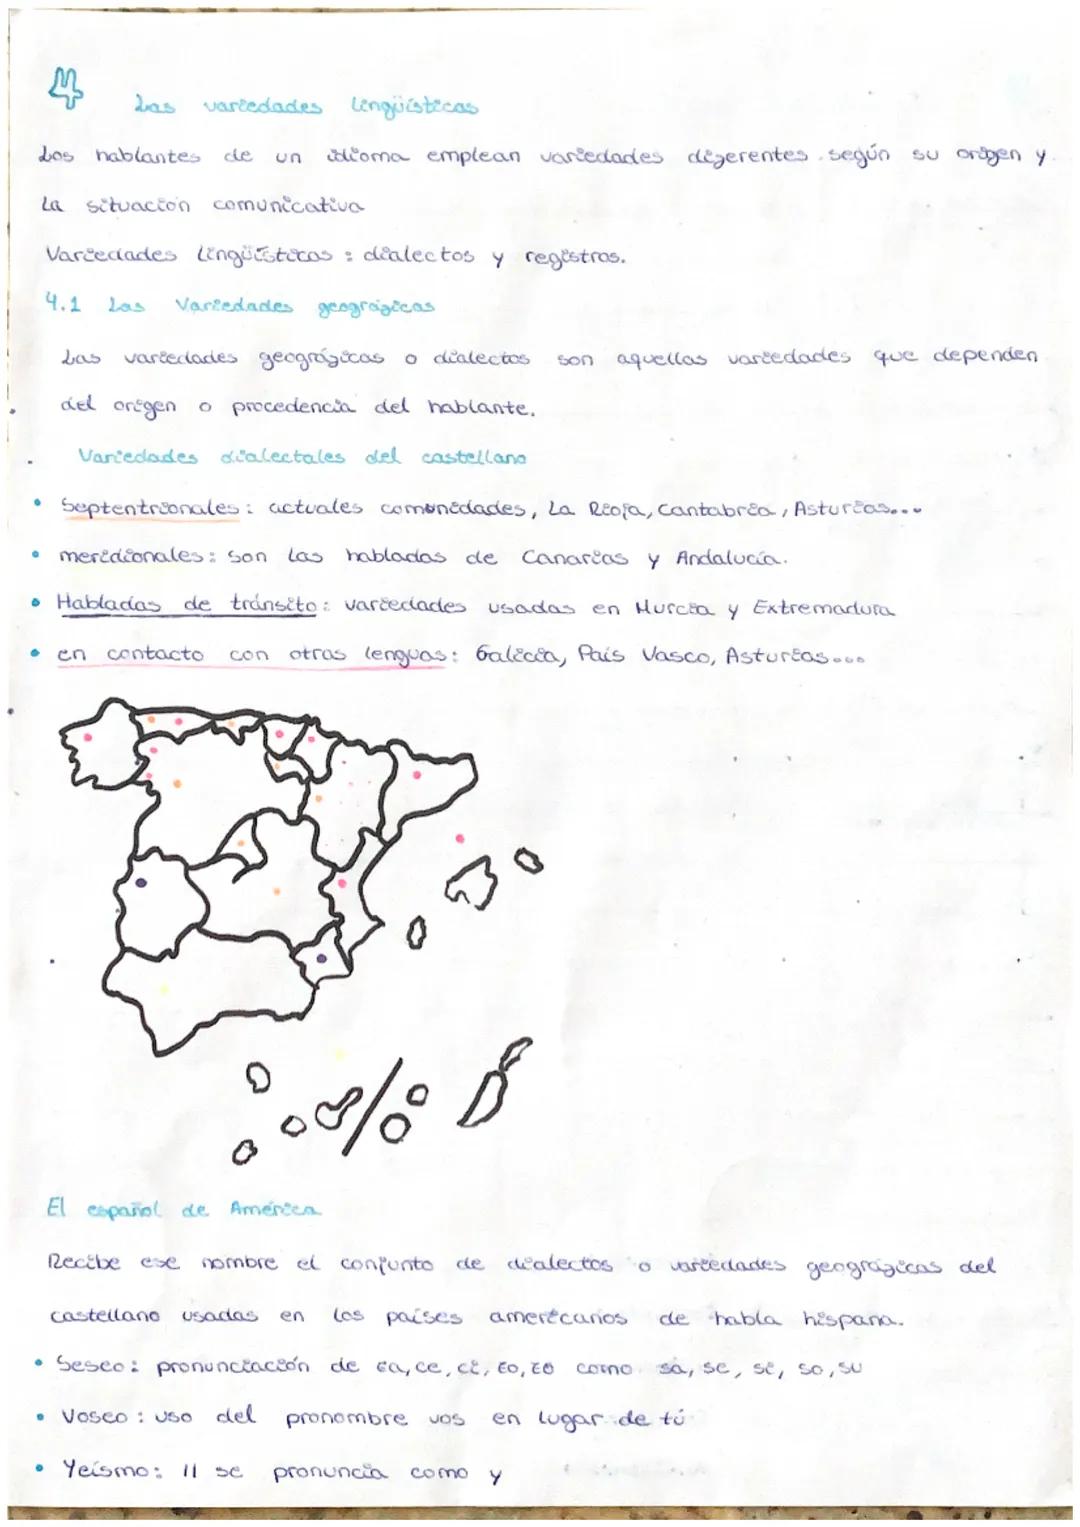 4 Las variedades lingüísticas
Los hablantes de un idioma emplean variedades diferentes según su origen y
la situación comunicativa
Variedades lingüísticas : dialectos y registros.
4.1 Las Variedades geográficas
Las variedades geográficas o dialectos son aquellas variedades que dependen
del origen o procedencia del hablante.
Variedades dialectales del castellano
• Septentrionales: actuales comunidades, La Rioja, Cantabria, Asturias...
• meridionales: son las habladas de Canarias y Andalucía.
• Habladas de tránsito: variedades usadas en Murcia y Extremadura
• en contacto con otras lenguas: Galicia, País Vasco, Asturias...
El español de América
Recibe ese nombre el conjunto de dialectos o variedades geográficas del
castellano usadas en los países americanos de habla hispana.
• Seseo: pronunciación de za, ce, ci, zo, zo como sa, se, si, so, su
• Voseo : uso del pronombre vos en lugar de tú
• Yeísmo: ll se pronuncia como y